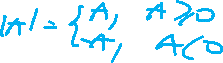 |A| = { A, A ≥ 0
-A, A < 0